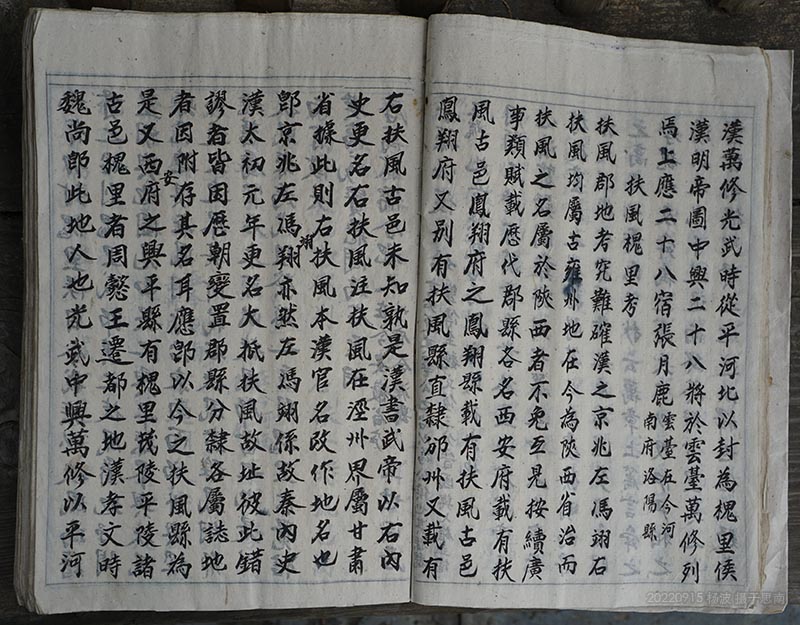 漢萬修光武時從平河北以封為槐里侯
漢明帝圖中興二十八將於雲臺萬修列
焉上應二十八宿張月鹿雲臺在今河南府洛陽縣
扶風槐里考
扶風郡地考究難確漢之京兆左馮翊右
扶風均屬古雍州地在今為陝西省治而
扶風之名屬於陝西者不免互見按續廣
事類賦載歷代郡縣各名西安府載有扶
風古邑鳳翔府之鳳翔縣載有扶風古邑
鳳翔府又別有扶風縣直隸邠州又載有
右扶風古邑未知孰是漢書武帝以右內
史更名右扶風注扶風在涇州界屬甘肅
省據此則右扶風本漢官名改作地名也
即京兆左馮翊亦然左馮翊係故秦內史
漢太初元年更名大抵扶風故址彼此錯
謬者皆因歷朝變置郡縣分隸各屬誌地
者因附存其名耳應即以今之扶風縣為
是又西安府之興平縣有槐里茂陵平陵諸
古邑槐里者周懿王遷都之地漢孝文時
魏尚即此地人也光武中興萬修以平河
20220915 杨波 摄于思南